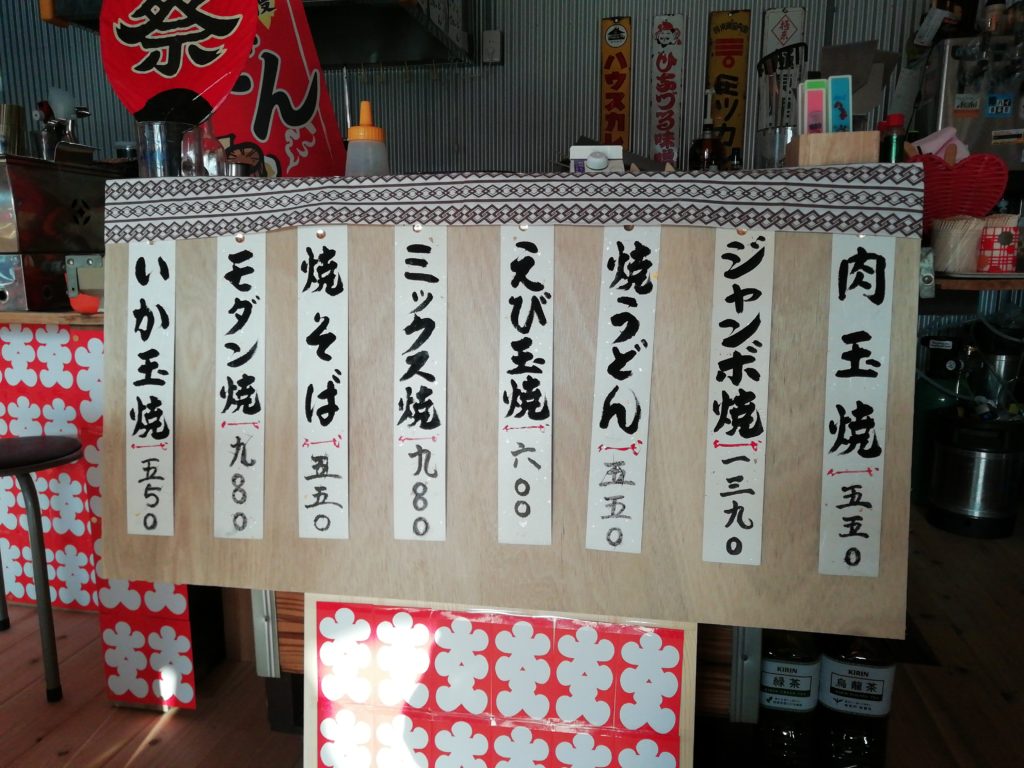 肉玉焼 五五〇
ジャンボ焼 一三九〇
焼うどん 五五〇
えび玉焼 六〇〇
ミックス焼 九80
焼そば 五五〇
モダン焼 九80
いか玉焼 五50
祭
ハウスカレ
ひよづる味噌
Asahi
KIRIN
緑茶
KIRIN
烏龍茶